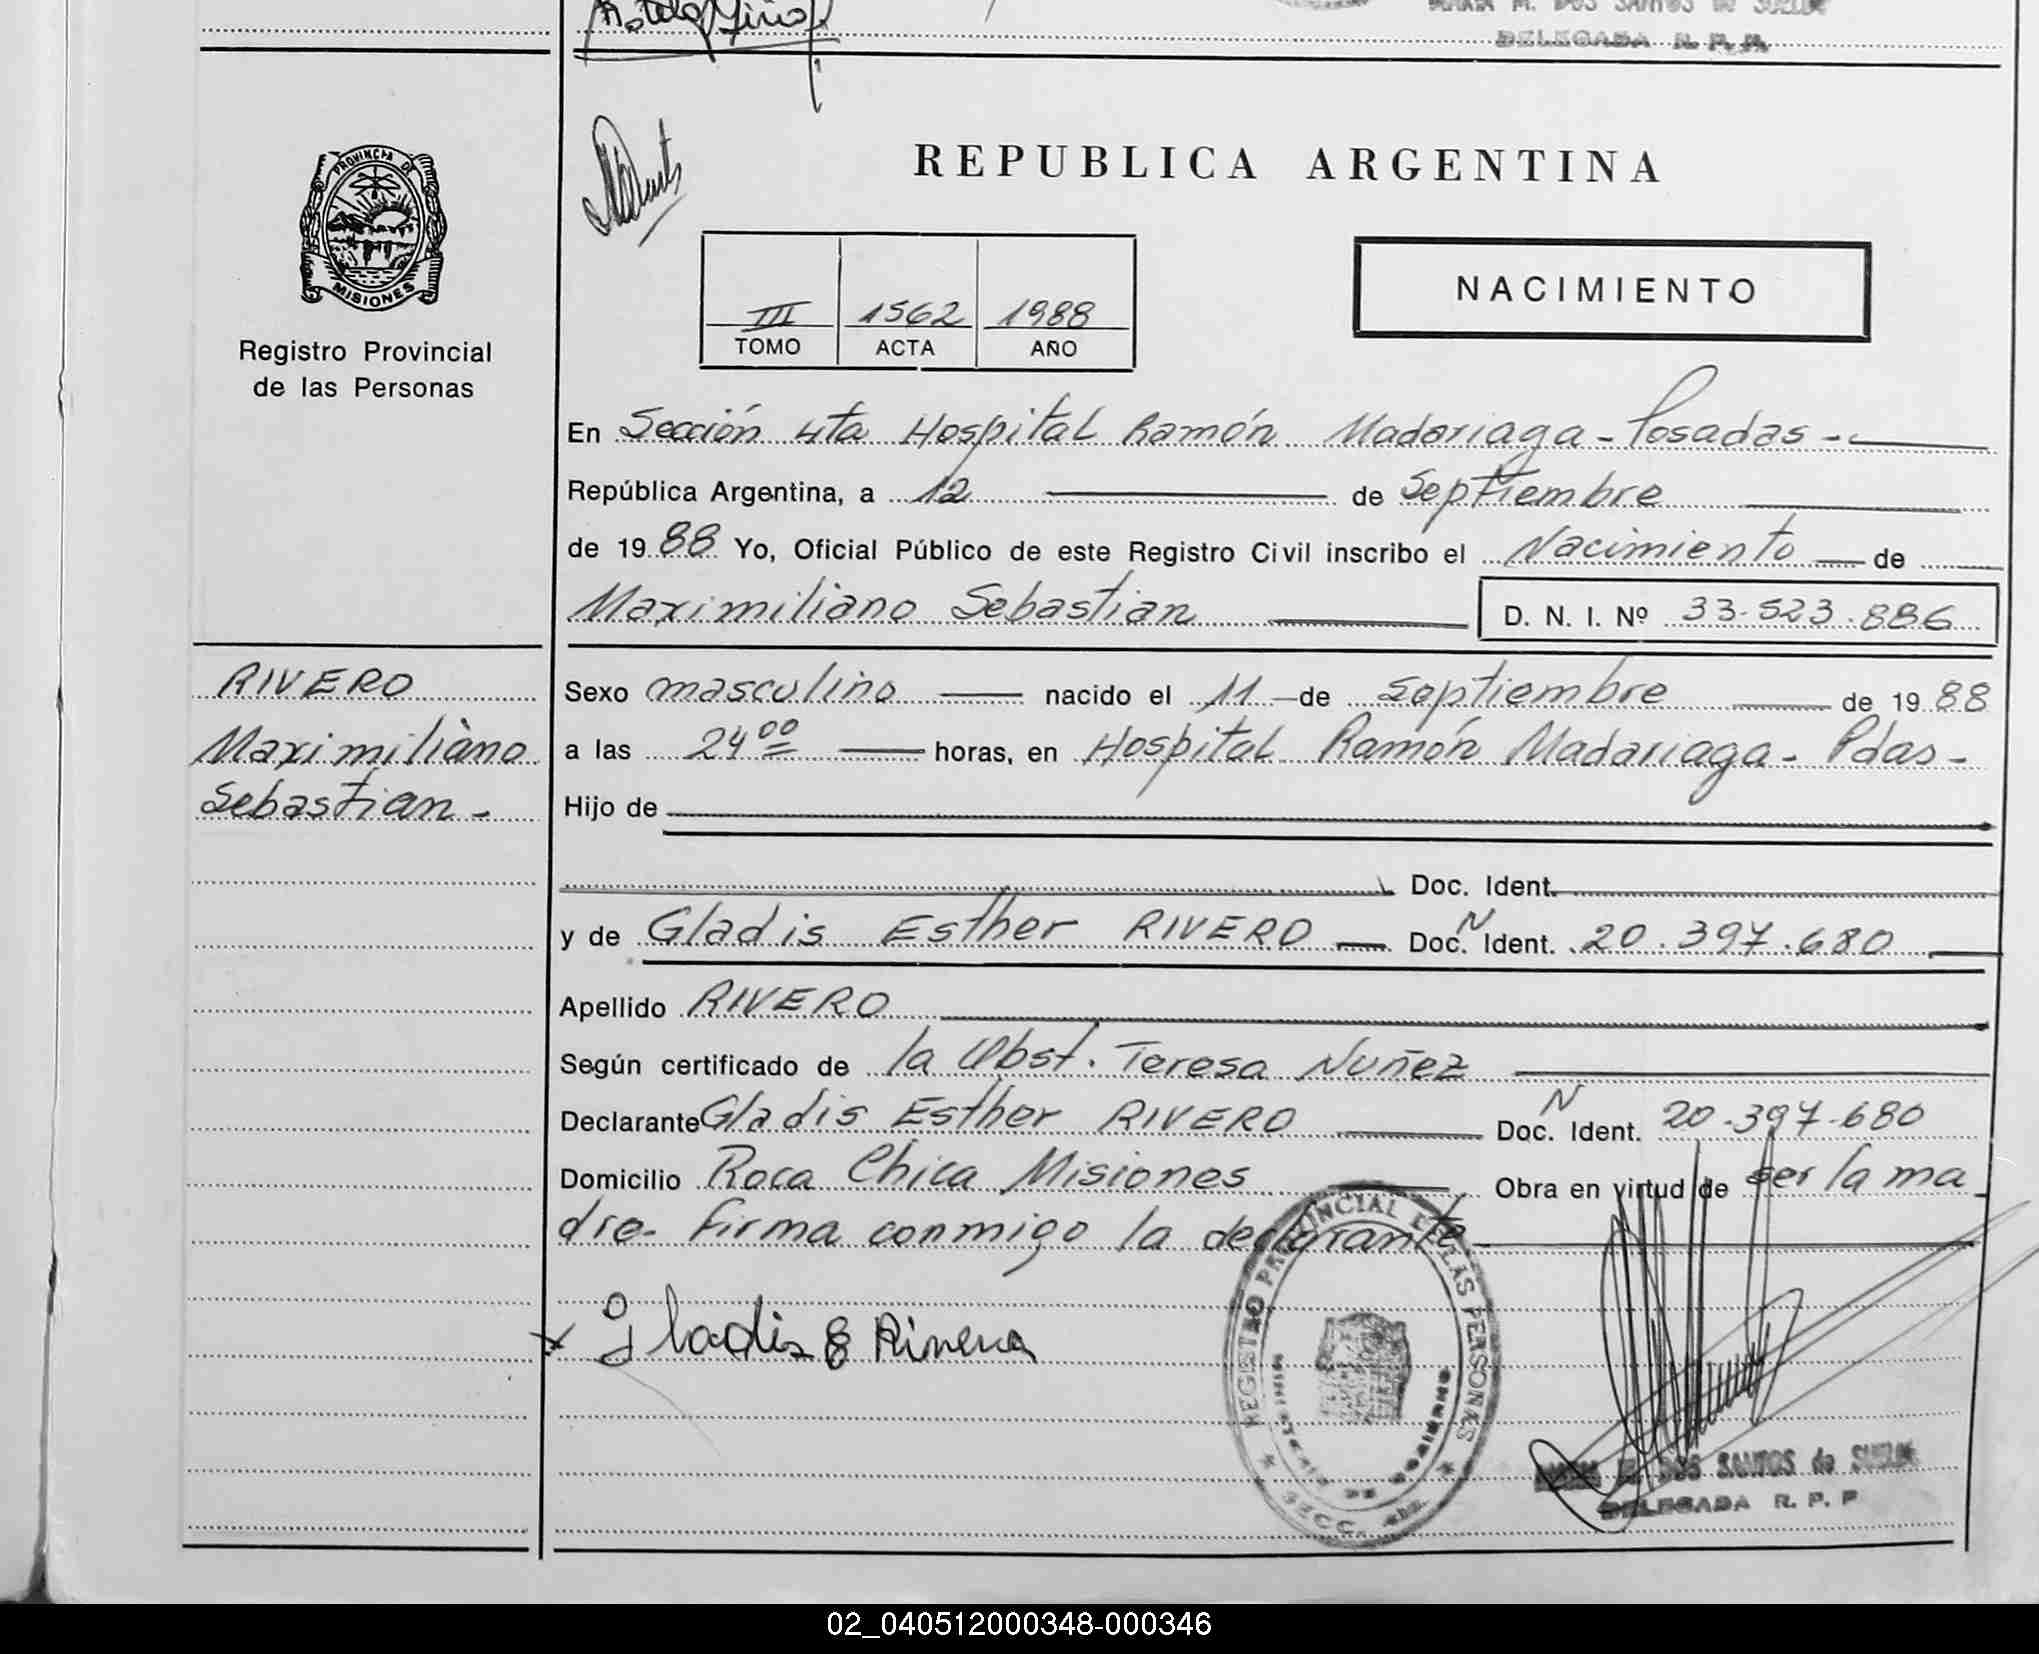 MARIA M. DOS SANTOS de SUELDE
DELEGADA R. P. P.
PROVINCIA DE
MISIONES
Registro Provincial
de las Personas
REPUBLICA ARGENTINA
III 1562 1988
TOMO ACTA AÑO
NACIMIENTO
En Sección 4ta Hospital Ramón Madariaga - Posadas -
República Argentina, a 12 de Septiembre
de 1988 Yo, Oficial Público de este Registro Civil inscribo el Nacimiento de
Maximiliano Sebastian D. N. I. Nº 33.523.886
RIVERO
Maximiliano
Sebastian -
Sexo masculino nacido el 11 de septiembre de 1988
a las 24 00 horas, en Hospital Ramón Madariaga - Pdas -
Hijo de
Doc. Ident.
y de Gladis Esther RIVERO Doc. N Ident. 20.397.680
Apellido RIVERO
Según certificado de la Obst. Teresa Nuñez
Declarante Gladis Esther RIVERO Doc. N Ident. 20-397-680
Domicilio Roca Chica Misiones Obra en virtud de ser la ma
dre - firma conmigo la declarante
x Gladis E Rivero
REGISTRO PROVINCIAL DE LAS PERSONAS
DOS SANTOS de SUELDE
DELEGADA R. P. P
02_040512000348-000346